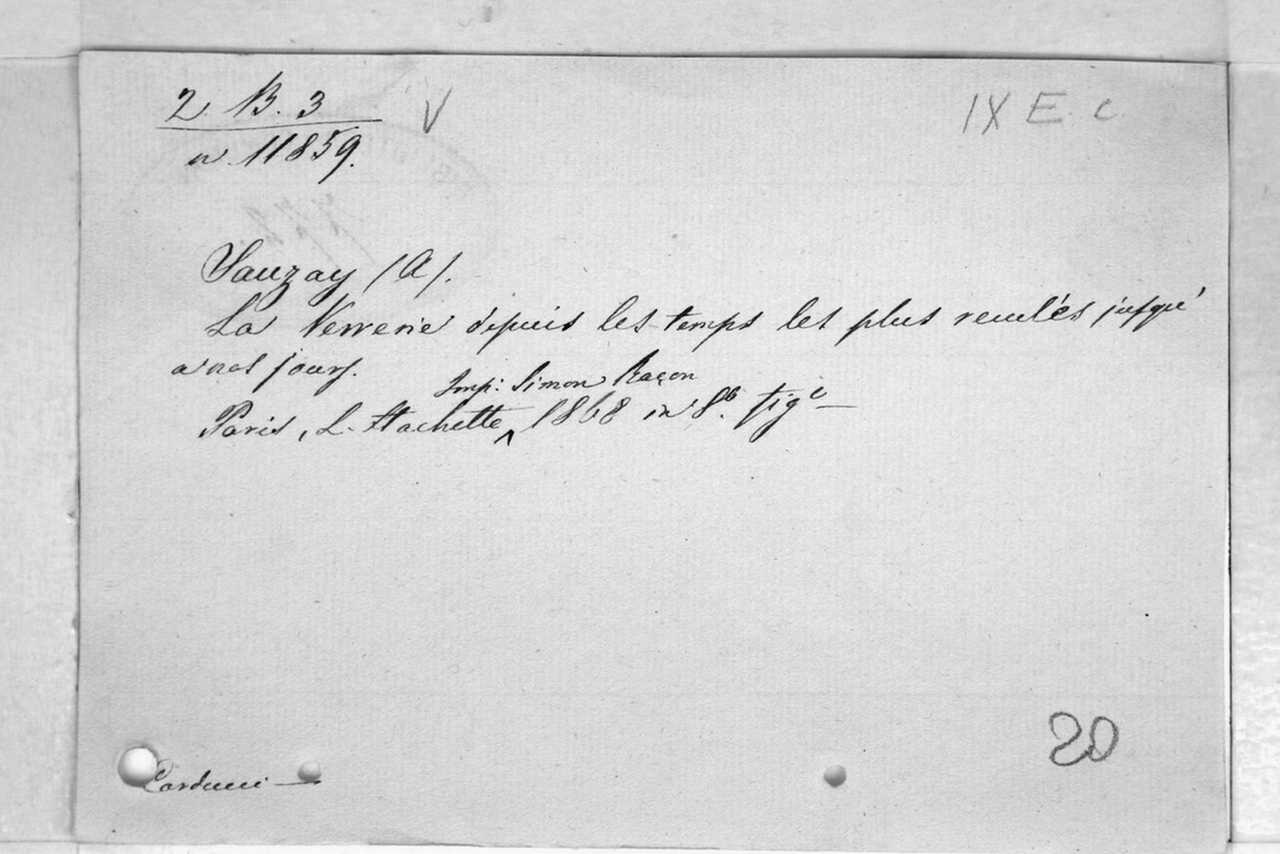 2. B. 3 V IX E c
n. 11859.
Sauzay (A).
La Verrerie dépuis les temps les plus reculés jusqu'
a nos jours.
Imp: Simon Raçon
Paris, L. Hachette ^ 1868 in 8.° fig.e
20
Carducci